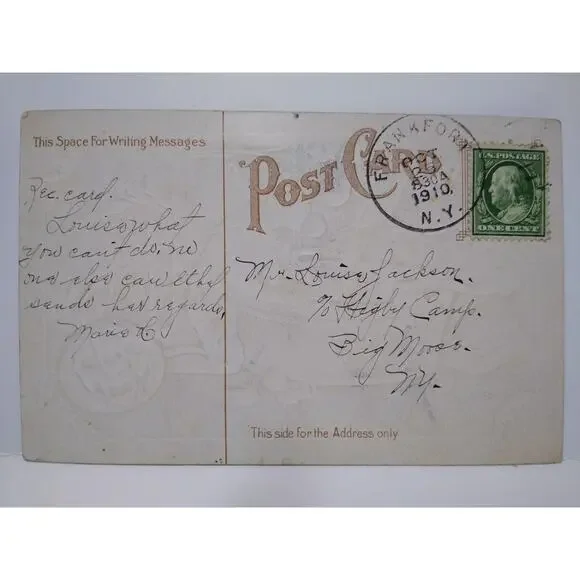 This Space For Writing Messages
POST CARD
FRANKFORT
OCT
830A
1910.
N.Y.
U.S. POSTAGE
ONE CENT
Rec. card.
Louise what
you can't do, no
one else can. Ethel
sends her regards,
Marie
Mr. Louise Jackson.
c/o Higby Camp.
Big Moose.
NY.
This side for the Address only